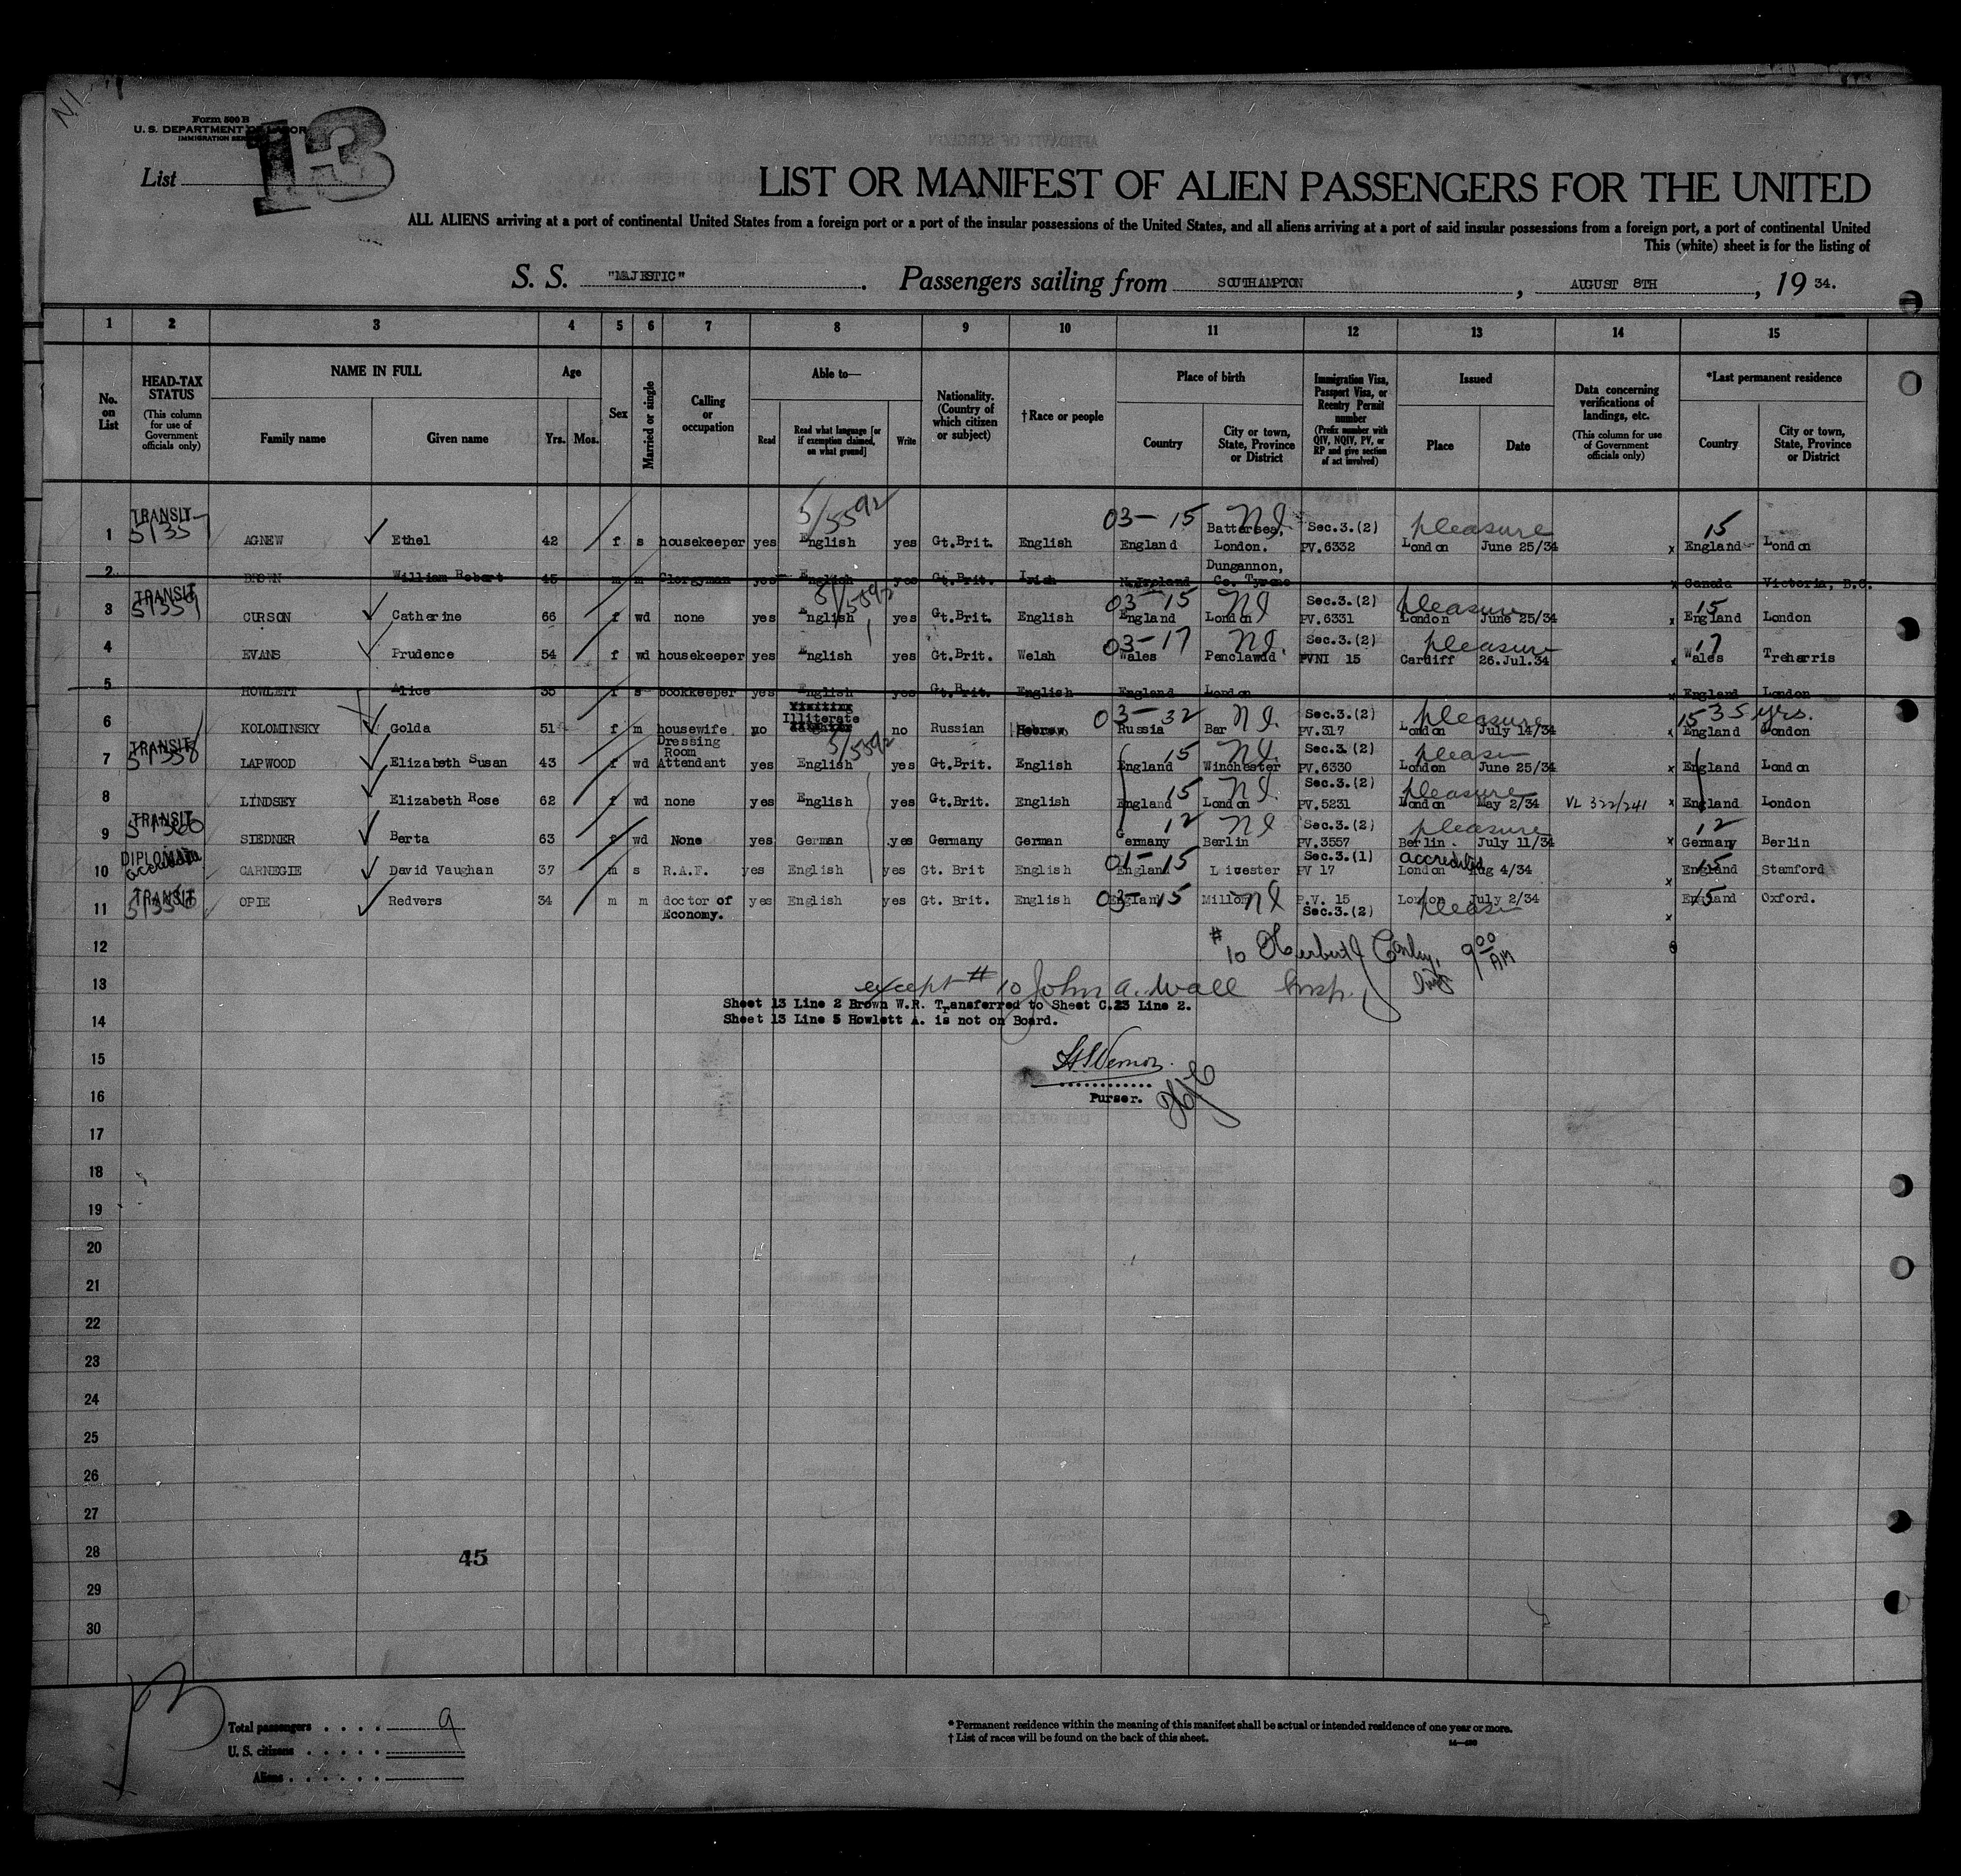 Form 500 B
U. S. DEPARTMENT OF LABOR
IMMIGRATION
List 13
LIST OR MANIFEST OF ALIEN PASSENGERS FOR THE UNITED
ALL ALIENS arriving at a port of continental United States from a foreign port or a port of the insular possessions of the United States, and all aliens arriving at a port of said insular possessions from a foreign port, a port of continental United
This (white) sheet is for the listing of
S. S. "MAJESTIC". Passengers sailing from SOUTHAMPTON, AUGUST 8TH, 19 34.
1 2 3 4 5 6 7 8 9 10 11 12 13 14 15
No. on List
HEAD-TAX STATUS (This column for use of Government officials only)
NAME IN FULL Family name Given name
Age Yrs. Mos.
Sex
Married or single
Calling or occupation
Able to— Read Read what language [or if exemption claimed, on what ground] Write
Nationality. (Country of which citizen or subject)
†Race or people
Place of birth Country City or town, State, Province or District
Immigration Visa, Passport Visa, or Reentry Permit number (Prefix number with QIV, NQIV, PV, or RP and give section of act involved)
Issued Place Date
Data concerning verifications of landings, etc. (This column for use of Government officials only)
*Last permanent residence Country City or town, State, Province or District
1 TRANSIT AGNEW Ethel 42 f s housekeeper yes English 5/5592 yes Gt.Brit. English 03-15 England Battersea, London. Sec.3.(2) PV.6332 pleasure London June 25/34 x 15 England London
2 BROWN William Robert 45 m m Clergyman yes English yes Gt.Brit. Irish N.Ireland Dungannon, Co. Tyrone x Canada Victoria, B.C.
3 TRANSIT 51359 CURSON Catherine 66 f wd none yes English 5/5592 yes Gt.Brit. English 03-15 England London Sec.3.(2) PV.6331 pleasure London June 25/34 x 15 England London
4 EVANS Prudence 54 f wd housekeeper yes English yes Gt.Brit. Welsh 03-17 Wales Penclawdd Sec.3.(2) PVNI 15 pleasure Cardiff 26.Jul.34 x 17 Wales Treharris
5 HOWLETT Alice 35 f s bookkeeper yes English yes Gt.Brit. English England London x England London
6 KOLOMINSKY Golda 51 f m housewife no Illiterate no Russian Hebrew 03-32 Russia Bar Sec.3.(2) PV.317 pleasure London July 14/34 x 15 35 yrs. England London
7 TRANSIT 51358 LAPWOOD Elizabeth Susan 43 f wd Dressing Room Attendant yes English 5/5592 yes Gt.Brit. English 15 England Winchester Sec.3.(2) PV.6330 London June 25/34 x England London
8 LINDSEY Elizabeth Rose 62 f wd none yes English yes Gt.Brit. English 15 England London Sec.3.(2) PV.5231 pleasure London May 2/34 VL 322/241 x England London
9 TRANSIT 51360 SIEDNER Berta 63 f wd None yes German yes Germany German 12 Germany Berlin Sec.3.(2) PV.3557 pleasure Berlin July 11/34 x 12 Germany Berlin
10 DIPLOMAT CARNEGIE David Vaughan 37 m s R.A.F. yes English yes Gt. Brit English 01-15 England Sec.3.(1) PV 17 accredited London Aug 4/34 x 15 England Stamford
11 TRANSIT OPIE Redvers 34 m m doctor of Economy. yes English yes Gt. Brit. English 03-15 England P.V. 15 Sec.3.(2) London July 2/34 x 15 England Oxford.
12 #10 Herbert 9 00 AM
13 except #10 John A. Wall Insp.
Sheet 13 Line 2 Brown W.R. Transferred to Sheet C.23 Line 2.
14 Sheet 13 Line 5 Howlett A. is not on Board.
15
16 Purser.
17
18
19
20
21
22
23
24
25
26
27
28 45
29
30
Total passengers . . . . 9
U. S. citizens . . . . .
Aliens . . . . . .
* Permanent residence within the meaning of this manifest shall be actual or intended residence of one year or more.
† List of races will be found on the back of this sheet.